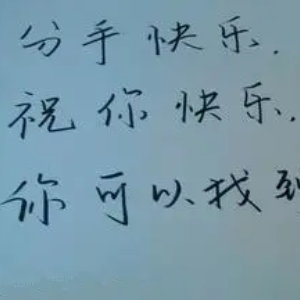 分手快乐.
祝你快乐.
你可以找到